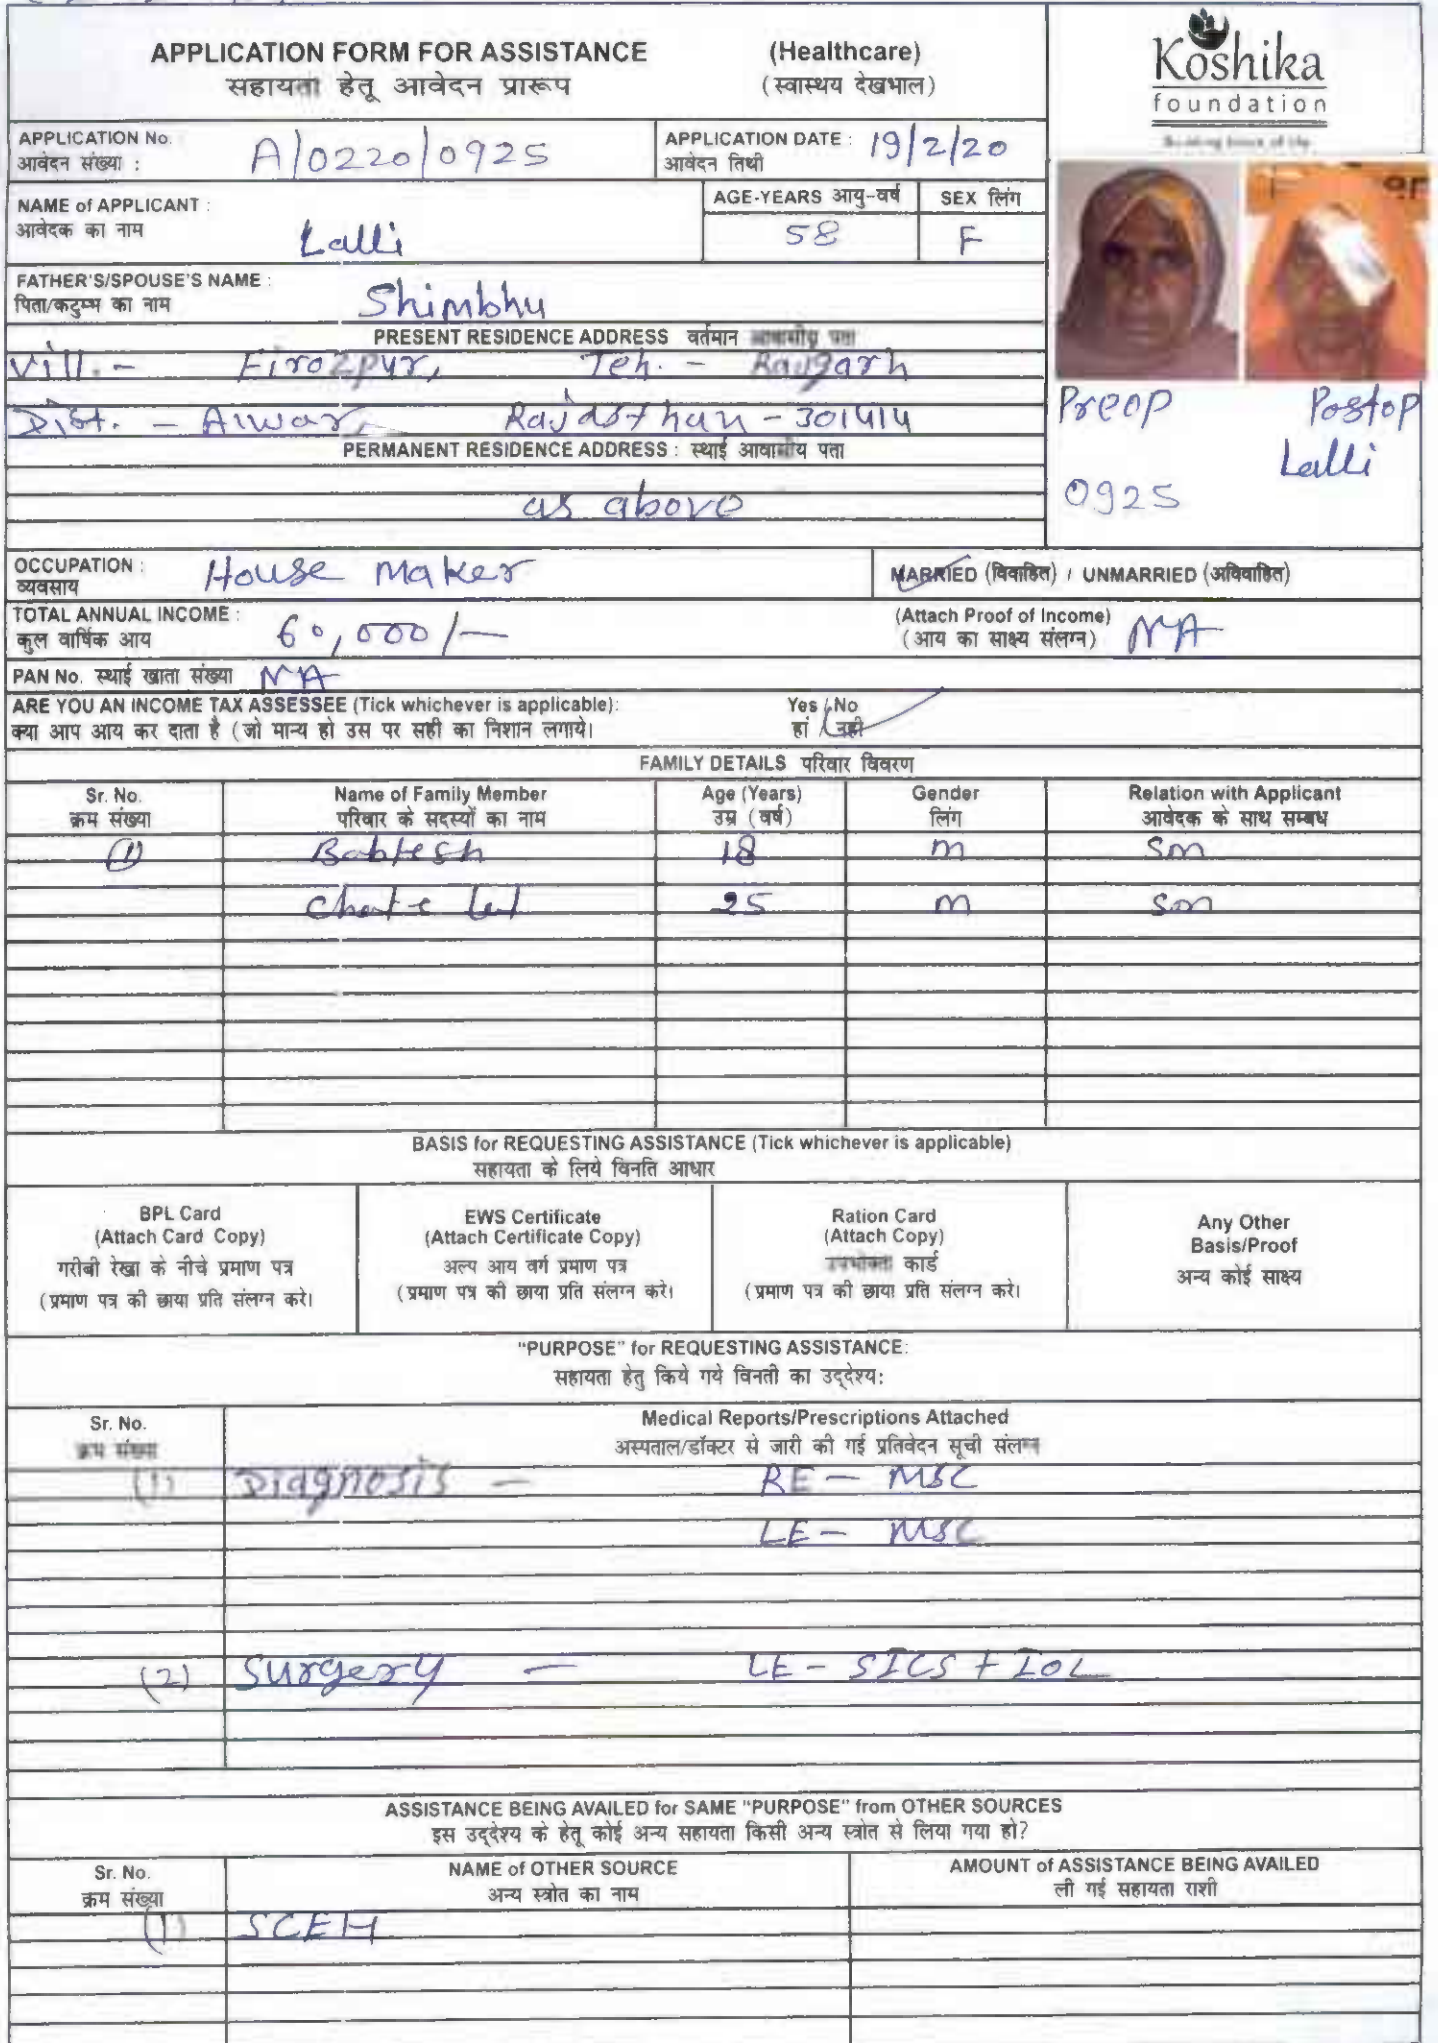 APPLICATION FORM FOR ASSISTANCE (Healthcare)
सहायता हेतू आवेदन प्रारूप (स्वास्थय देखभाल)
Koshika
foundation
APPLICATION No.
आवेदन संख्या : A/0220/0925
APPLICATION DATE : 19/2/20
आवेदन तिथी
NAME of APPLICANT :
आवेदक का नाम Lalli
AGE-YEARS आयु-वर्ष SEX लिंग
58 F
FATHER'S/SPOUSE'S NAME :
पिता/कटुम्भ का नाम Shimbhu
PRESENT RESIDENCE ADDRESS वर्तमान पता
Vill. - Firozpur, Teh. - Rajgarh
Dist. - Alwar, Rajasthan - 301414
Preop Postop
Lalli
0925
PERMANENT RESIDENCE ADDRESS : स्थाई आवासीय पता
as above
OCCUPATION :
व्यवसाय House Maker
MARRIED (विवाहित) / UNMARRIED (अविवाहित)
TOTAL ANNUAL INCOME :
कुल वार्षिक आय 60,000/-
(Attach Proof of Income)
(आय का साक्ष्य संलग्न) NA
PAN No. स्थाई खाता संख्या NA
ARE YOU AN INCOME TAX ASSESSEE (Tick whichever is applicable): Yes / No
क्या आप आय कर दाता है (जो मान्य हो उस पर सही का निशान लगाये। हां / नही
FAMILY DETAILS परिवार विवरण
Sr. No. Name of Family Member Age (Years) Gender Relation with Applicant
क्रम संख्या परिवार के सदस्यों का नाम उम्र (वर्ष) लिंग आवेदक के साथ सम्बध
(1) 18 M Son
25 M Son
BASIS for REQUESTING ASSISTANCE (Tick whichever is applicable)
सहायता के लिये विनति आधार
BPL Card
(Attach Card Copy)
गरीबी रेखा के नीचे प्रमाण पत्र
(प्रमाण पत्र की छाया प्रति संलग्न करे।
EWS Certificate
(Attach Certificate Copy)
अल्प आय वर्ग प्रमाण पत्र
(प्रमाण पत्र की छाया प्रति संलग्न करे।
Ration Card
(Attach Copy)
उपभोक्ता कार्ड
(प्रमाण पत्र की छाया प्रति संलग्न करे।
Any Other
Basis/Proof
अन्य कोई साक्ष्य
"PURPOSE" for REQUESTING ASSISTANCE:
सहायता हेतु किये गये विनती का उद्देश्य:
Sr. No. Medical Reports/Prescriptions Attached
क्रम संख्या अस्पताल/डॉक्टर से जारी की गई प्रतिवेदन सूची संलग्न
(1) Diagnosis - RE - MSC
LE - MSC
(2) Surgery - LE - SICS + IOL
ASSISTANCE BEING AVAILED for SAME "PURPOSE" from OTHER SOURCES
इस उद्देश्य के हेतू कोई अन्य सहायता किसी अन्य स्त्रोत से लिया गया हो?
Sr. No. NAME of OTHER SOURCE AMOUNT of ASSISTANCE BEING AVAILED
क्रम संख्या अन्य स्त्रोत का नाम ली गई सहायता राशी
(1) SCEH